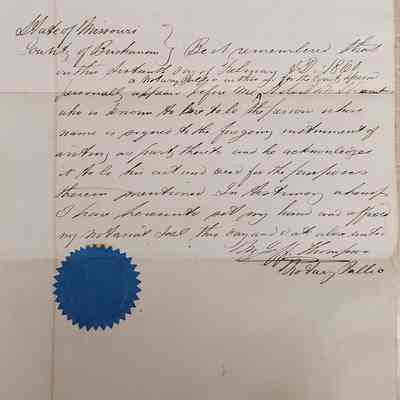 State of Missouri
County of Buchanan } Be it remembered that
on this day of February A.D. 1860
a Notary Public in the
personally appeared before me
who is known to be the person whose
name is signed to the foregoing instrument of
writing as party thereto and he acknowledges
it to be his act and deed for the purposes
therein mentioned In testimony whereof
I have hereunto set my hand and affixed
my notarial seal this day and date above
Thompson
Notary Public